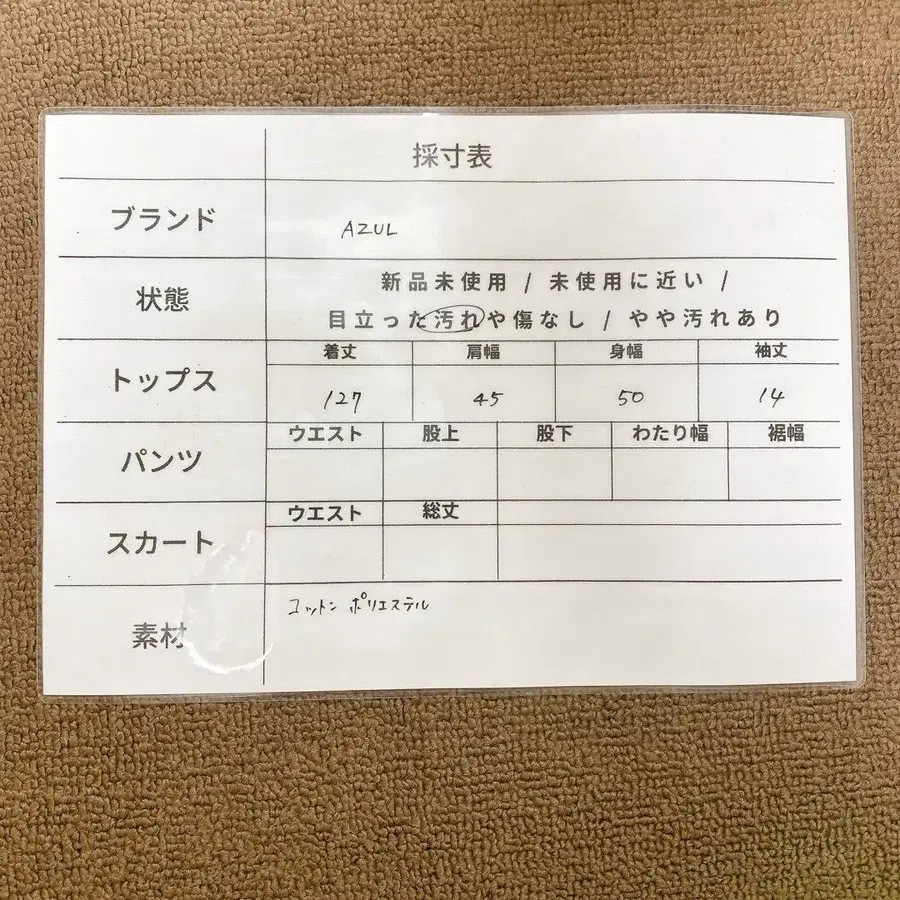 採寸表
ブランド
AZUL
状態
新品未使用 / 未使用に近い /
目立った汚れや傷なし / やや汚れあり
トップス
着丈 肩幅 身幅 袖丈
127 45 50 14
パンツ
ウエスト 股上 股下 わたり幅 裾幅
スカート
ウエスト 総丈
素材
コットン ポリエステル